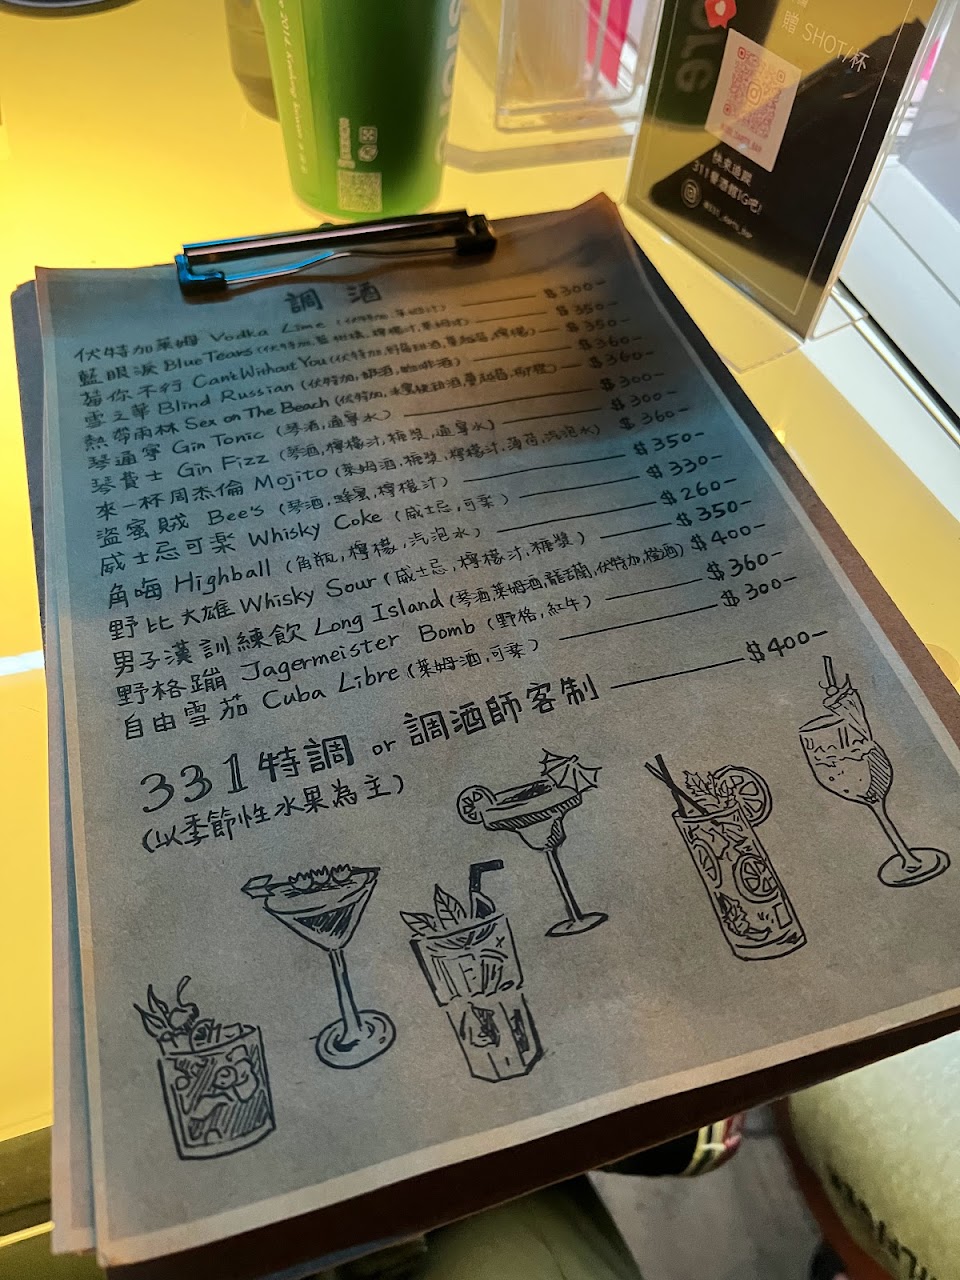 贈 SHOT/杯
快來追蹤
311 IG吧!
調酒
伏特加萊姆 Vodka Lime (伏特加,萊姆汁) $300-
藍眼淚 Blue Tears (伏特加,藍柑橘,檸檬汁,萊姆汁) $350-
莓你不行 Can't Without You (伏特加,野莓甜酒,蔓越莓,檸檬) $350-
雪之華 Blind Russian (伏特加,奶酒,咖啡酒) $360-
熱帶雨林 Sex on The Beach (伏特加,水蜜桃甜酒,蔓越莓,柳橙) $360-
琴通寧 Gin Tonic (琴酒,通寧水) $300-
琴費士 Gin Fizz (琴酒,檸檬汁,糖漿,通寧水) $300-
來一杯周杰倫 Mojito (萊姆酒,糖漿,檸檬汁,薄荷,汽泡水) $360-
盜蜜賊 Bee's (琴酒,蜂蜜,檸檬汁) $350-
威士忌可樂 Whisky Coke (威士忌,可樂) $330-
角嗨 Highball (角瓶,檸檬,汽泡水) $260-
野比大雄 Whisky Sour (威士忌,檸檬汁,糖漿) $350-
男子漢訓練飲 Long Island (琴酒,萊姆酒,龍舌蘭,伏特加,橙酒) $400-
野格蹦 Jagermeister Bomb (野格,紅牛) $360-
自由雪茄 Cuba Libre (萊姆酒,可樂) $300-
331特調 or 調酒師客制 $400-
(以季節性水果為主)